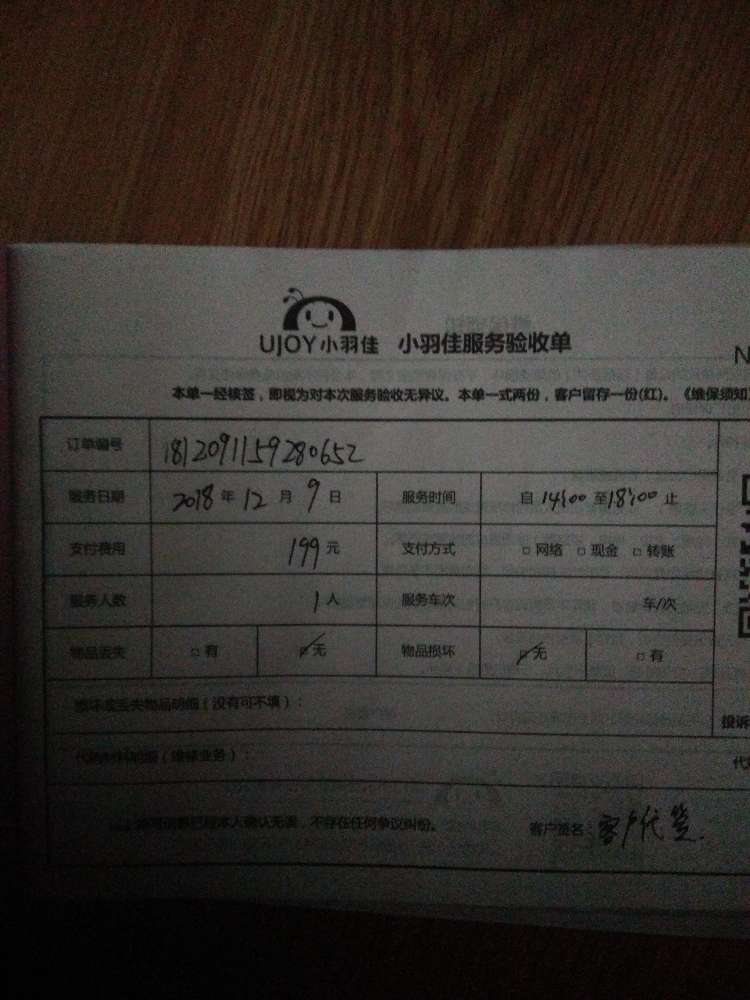 UJOY小羽佳 小羽佳服务验收单
N
本单一经续签，即视为对本次服务验收无异议。本单一式两份，客户留存一份(红)。《维保须知
订单编号 1812091159280652
服务日期 2018年12月9日 服务时间 自14:00至18:00止
支付费用 199元 支付方式 □网络 □现金 □转账
服务人数 1人 服务车次 车/次
物品丢失 □有 □无 物品损坏 □无 □有
损坏或丢失物品明细（没有可不填）：
投诉
明细（维修业务）： 代
本人确认无误，不存在任何争议纠纷。 客户签名：客户代签.